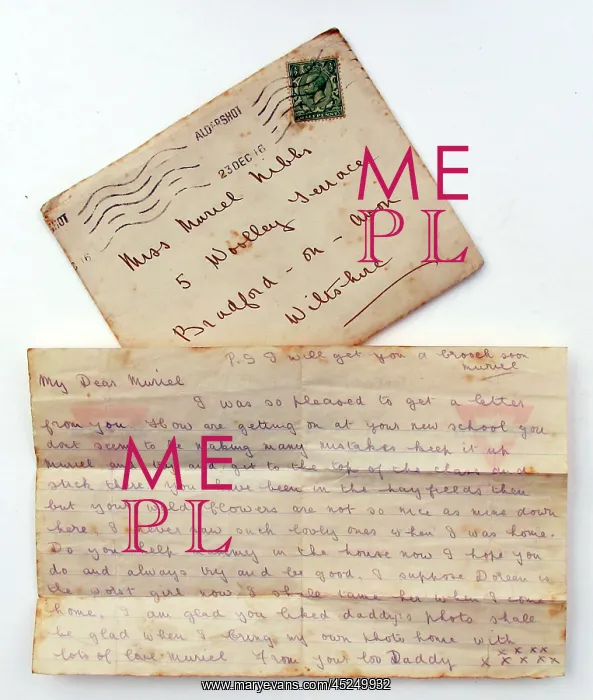 ALDERSHOT
23 DEC 16
Miss Muriel Nibbs
5 Woolley Terrace
Bradford - on - Avon
Wiltshire
HALFPENNY
SHOT
16
ME
PL
P.S I will get you a brooch soon
muriel
My Dear Muriel
I was so pleased to get a letter
from you How are getting on at your new school you
dont seem to be making many mistakes keep it up
Muriel and try and get to the top of the class and
stick there. You have been in the hayfields then
but your wild flowers are not so nice as mine down
here. I never saw such lovely ones when I was home.
Do you help mummy in the house now I hope you
do and always try and be good. I suppose Doreen is
the worst girl now I shall tame her when I come
home. I am glad you liked daddy's photo shall
be glad when I bring my own photo home with
lots of love Muriel From your loo Daddy
x x x x
x x x x x
ME
PL
www.maryevans.com/45249932